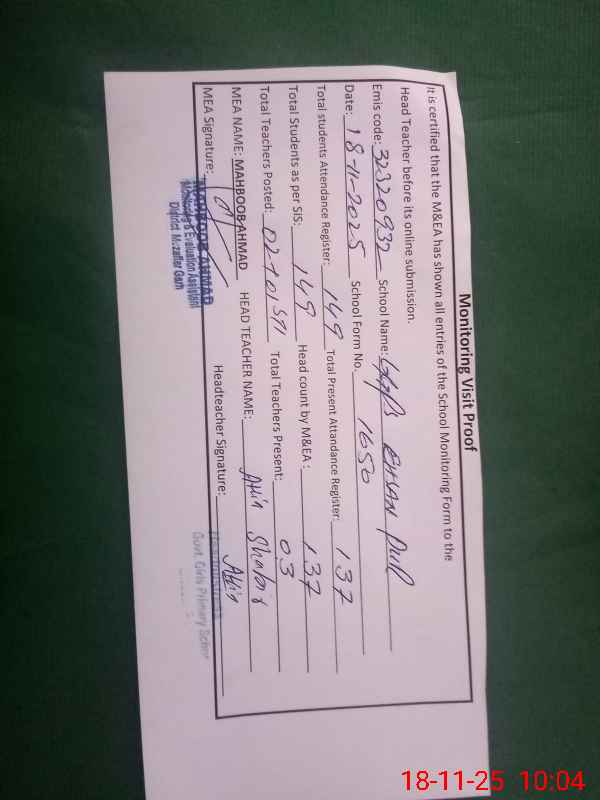 Monitoring Visit Proof
It is certified that the M&EA has shown all entries of the School Monitoring Form to the
Head Teacher before its online submission.
Emis code: 32320932 School Name: EHSAN PUR
Date: 18-11-2025 School Form No. 1650
Total students Attendance Register: 149 Total Present Attandance Register: 137
Total Students as per SIS: 149 Head count by M&EA : 137
Total Teachers Posted: 02+01 Total Teachers Present: 03
MEA NAME: MAHBOOB AHMAD HEAD TEACHER NAME:
MEA Signature: Headteacher Signature:
MAHBOOB AHMAD
Monitoring & Evaluation Assistant
District Muzaffar Garh
Govt. Girls Primary School
18-11-25 10:04